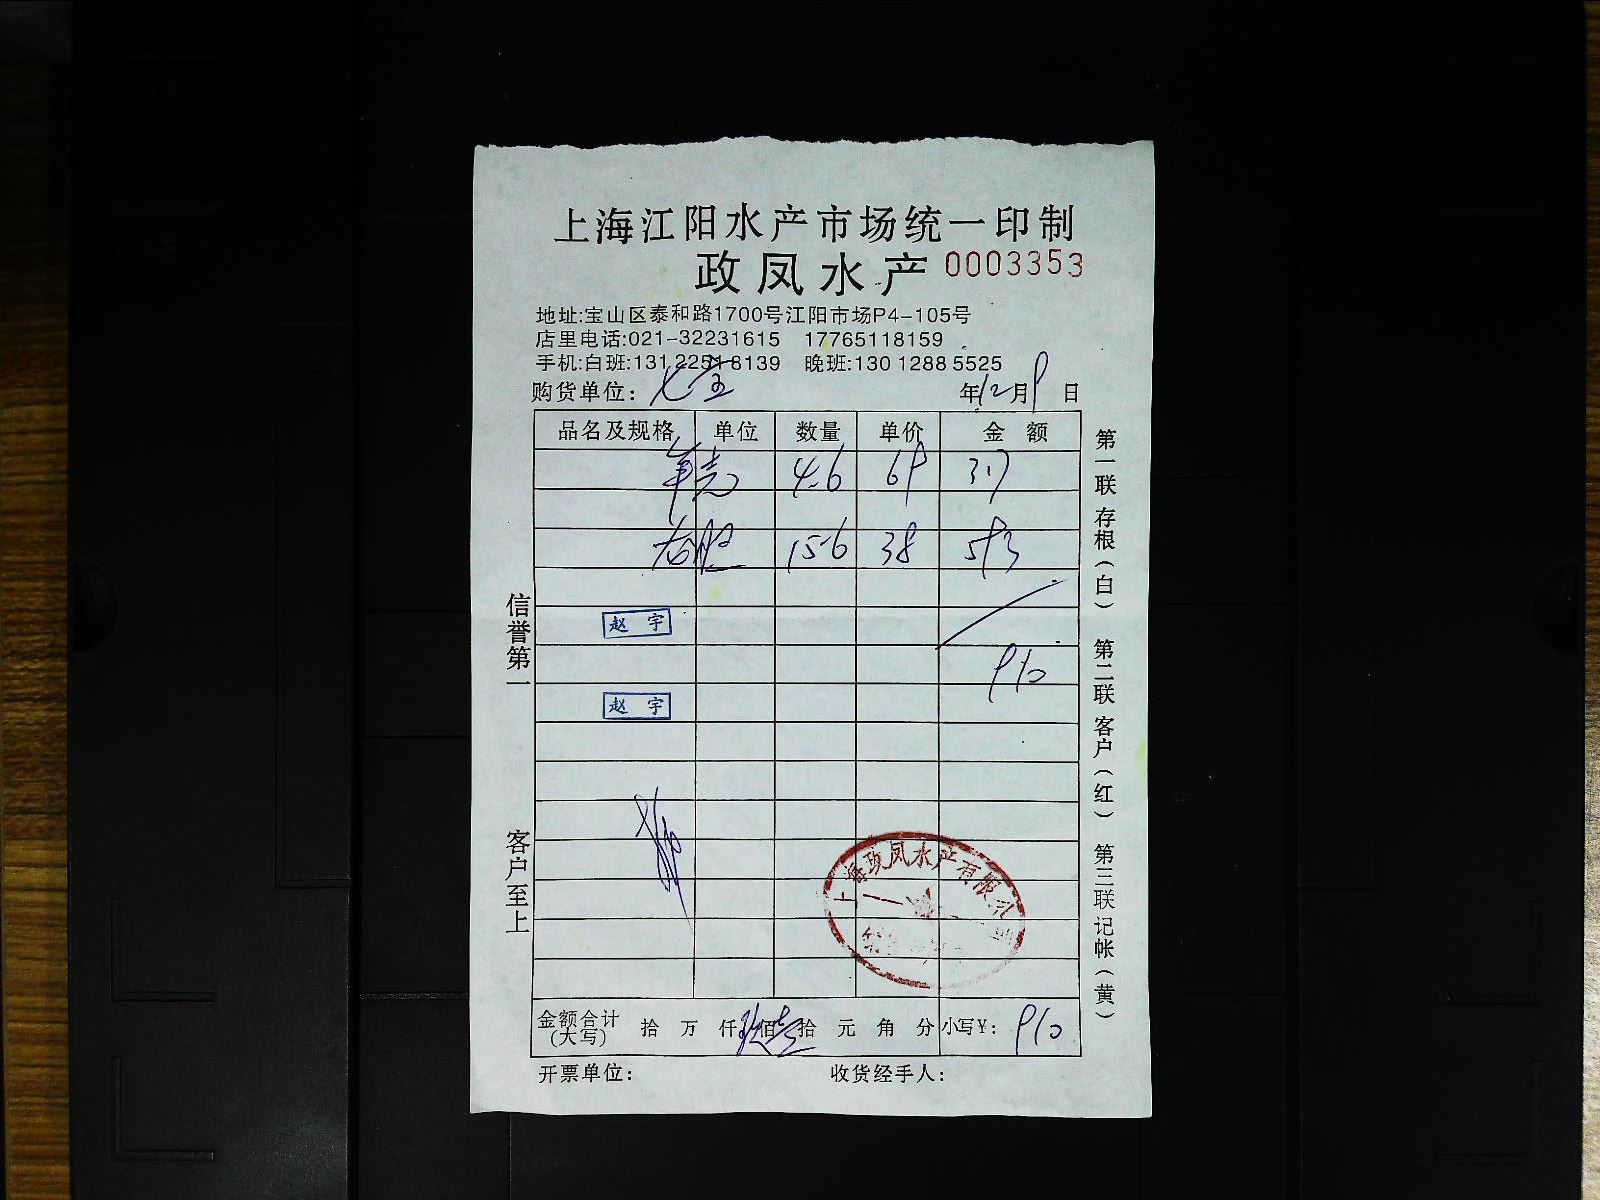 上海江阳水产市场统一印制
政凤水产 0003353
地址:宝山区泰和路1700号江阳市场P4-105号
店里电话:021-32231615 17765118159
手机:白班:131 2251 8139 晚班:130 1288 5525
购货单位: 七宝 年12月9日
品名及规格 单位 数量 单价 金额
4.6 69 317
15.6 38 593
赵宇
910
赵宇
上海政凤水产有限公司
金额合计(大写) 拾 万 仟 玖佰壹拾 元 角 分 小写¥: 910
开票单位: 收货经手人:
信誉第一
客户至上
第一联 存根(白) 第二联 客户(红) 第三联 记帐(黄)